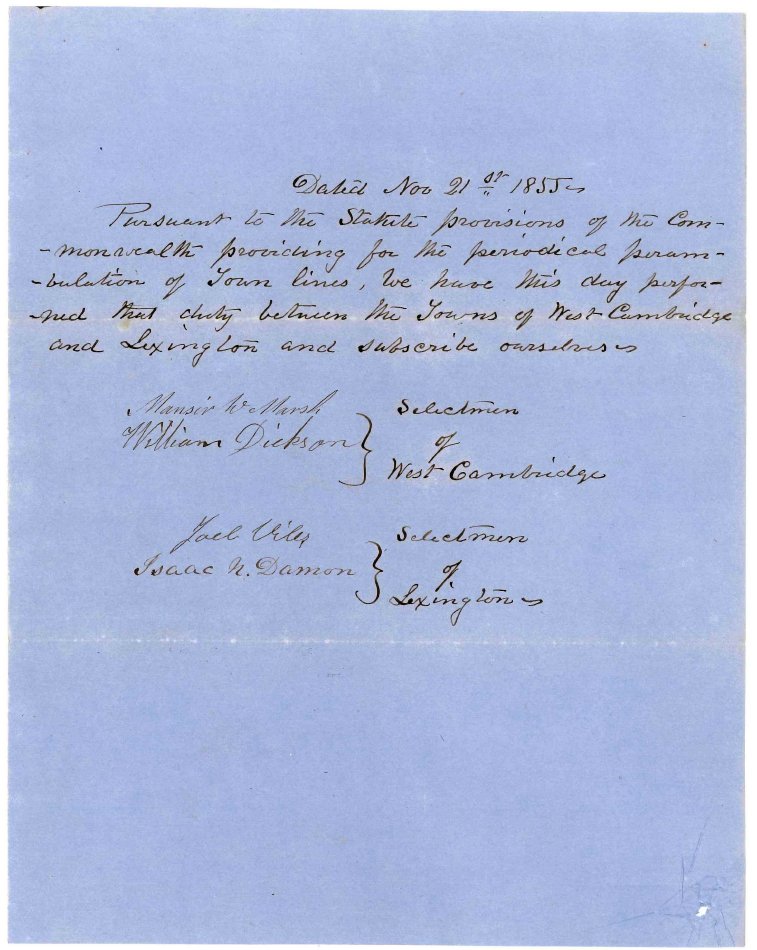 Dated Nov 21st 1855
Pursuant to the Statute provisions of the Com-
-monwealth providing for the periodical peram-
-bulation of Town lines, We have this day perfor-
-med that duty between the Towns of West Cambridge
and Lexington and subscribe ourselves
Mansir W Marsh
William Dickson
Selectmen
of
West Cambridge
Joel Viles
Isaac N. Damon
Selectmen
of
Lexington